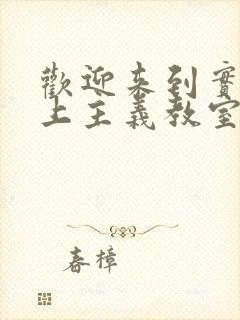 歡迎來到實
上主義教室
春樟